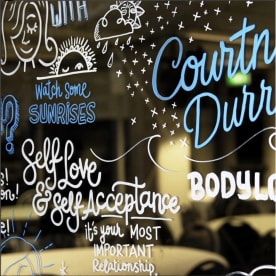 WITH
Watch Some
SUNRISES
?
Courtn
Durr
Self Love
& Self Acceptance
it's your MOST
IMPORTANT
Relationship.
BODYLO